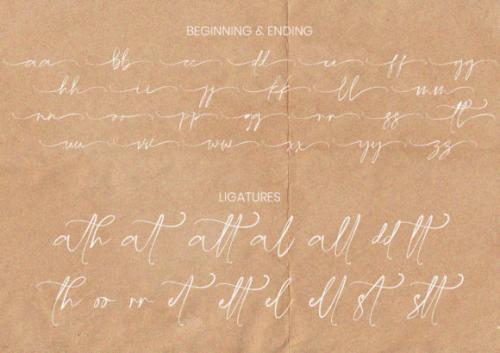 BEGINNING & ENDING
aa bb cc dd ee ff gg
hh ii jj kk ll mm
nn oo pp qq rr ss tt
uu vv ww xx yy zz
LIGATURES
ath at att al all dd tt
th oo rr et ett el ell st stt